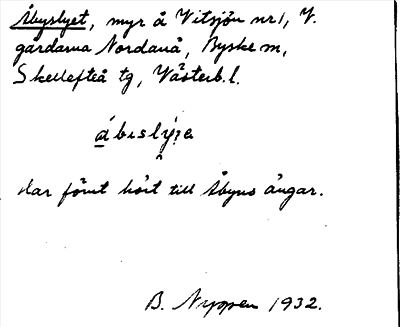 Åbyslyet, myr å Vitsjön nr 1, V.
gårdarna Nordanå, Byske m,
Skellefteå tg, Västerb. l.
Har förut hört till Åbyns ängar.
B. Nyppen 1932.